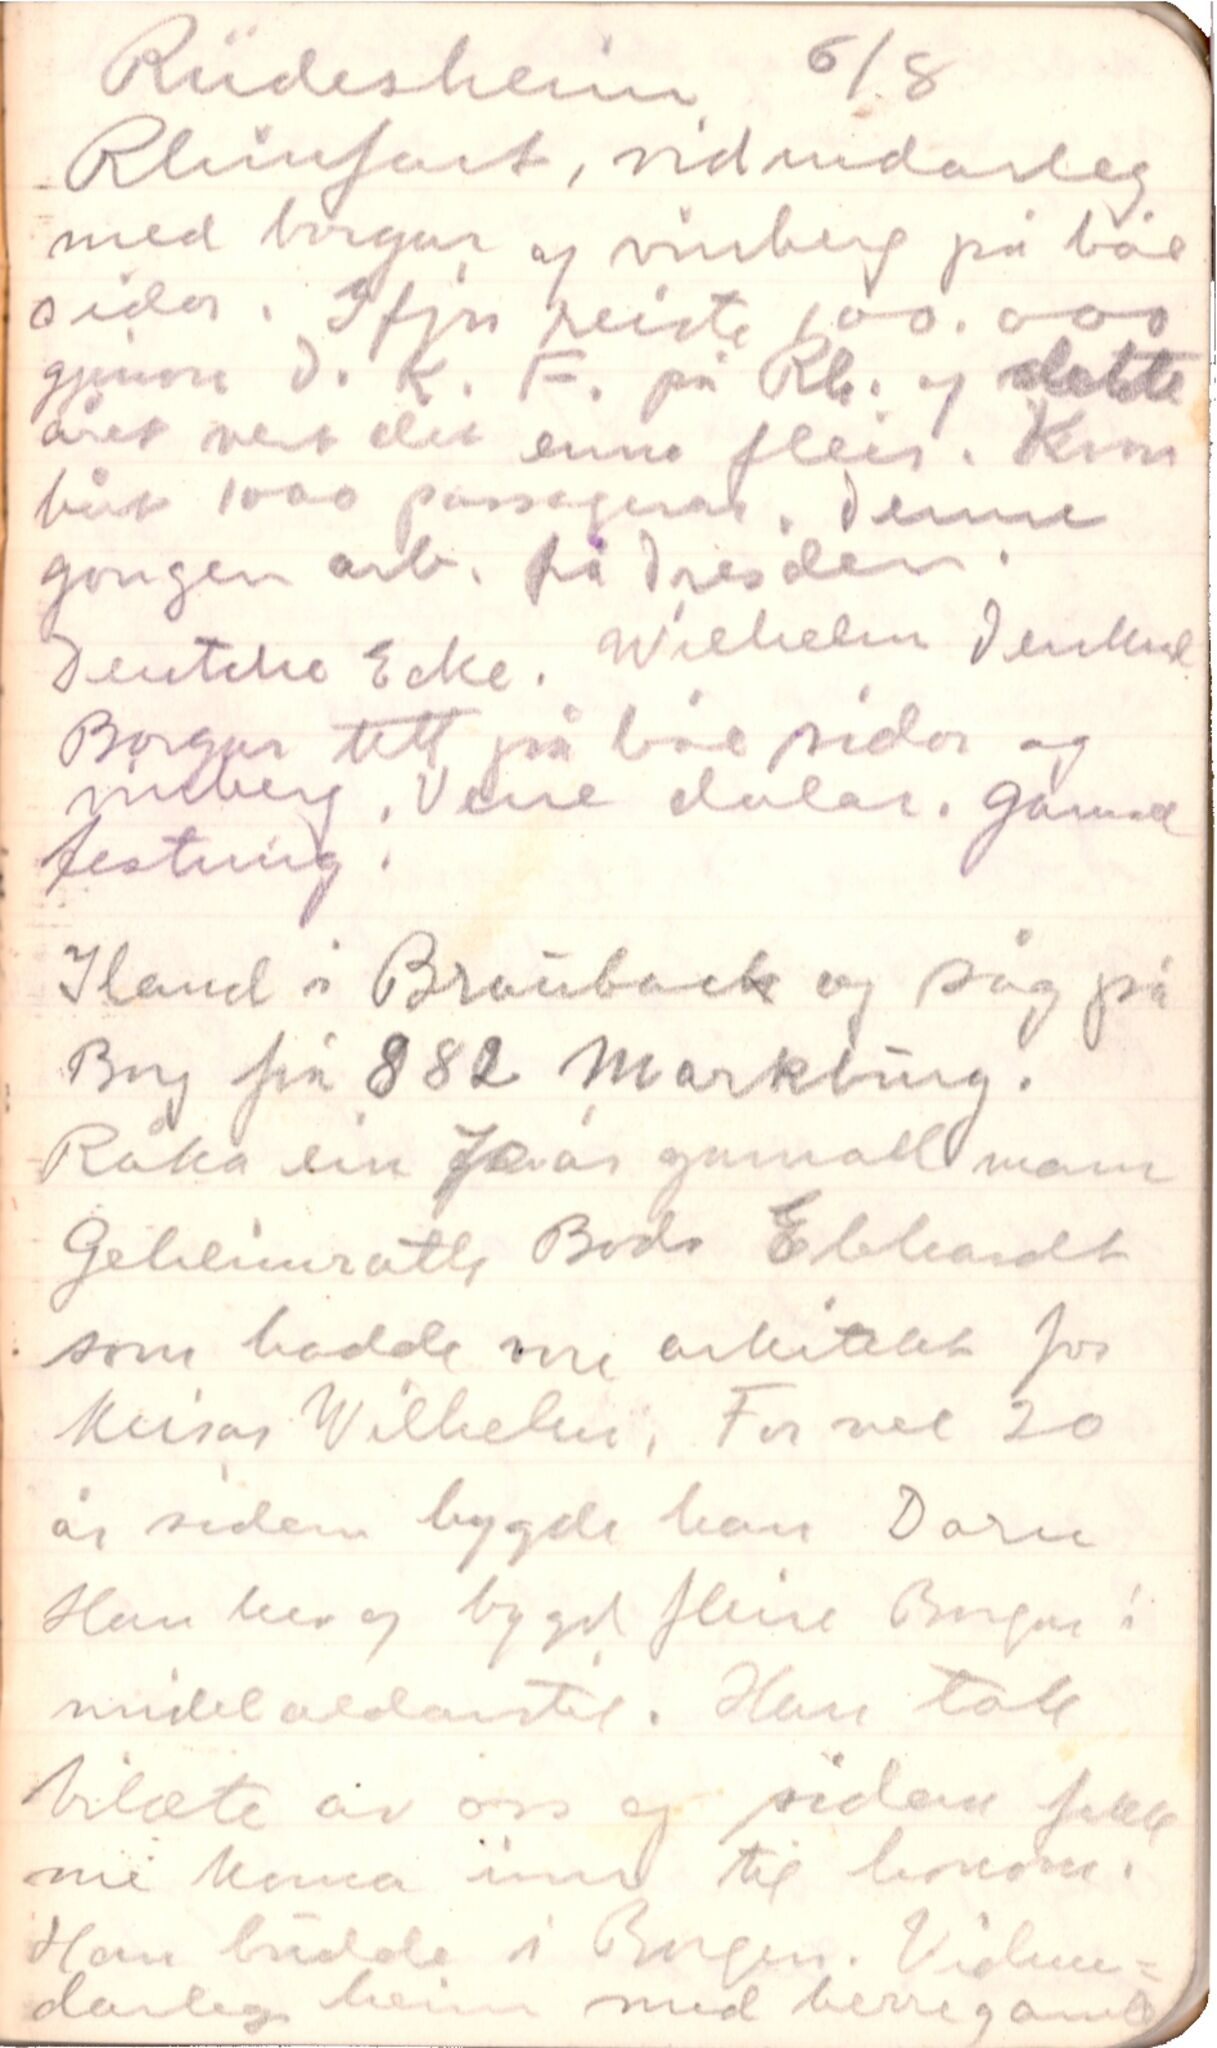 Rüdesheim 6/8
Rhinfart, vidundarleg
med borgar og vinberg på båe
sidor. I fjor reiste 100.000
gjenom D. K. F. på Rh. og dette
året vert det enno fleir. Kvar
båt 1000 passagerar. Denne
gongen arb. frå Dresden.
Deutche Ecke. Wilhelm Denkmal
Borgar tett på båe sidor og
vinberg. Vene dalar. Gamal
festning.
Iland i Braubach og såg på
Borg frå 882 Markburg.
Råka ein år gamall mann
Geheimrath Bodo Ebhardt
som hadde vore arkitekt for
Keisar Wilhelm. For vel 20
år sidan bygde han
Han hev og bygd fleire Borgar i
midelaldarstil. Han tok
bilæte av oss og sidan fekk
me koma inn til honom.
Han budde i Borgen. Vidun=
darleg heim med berre gamle